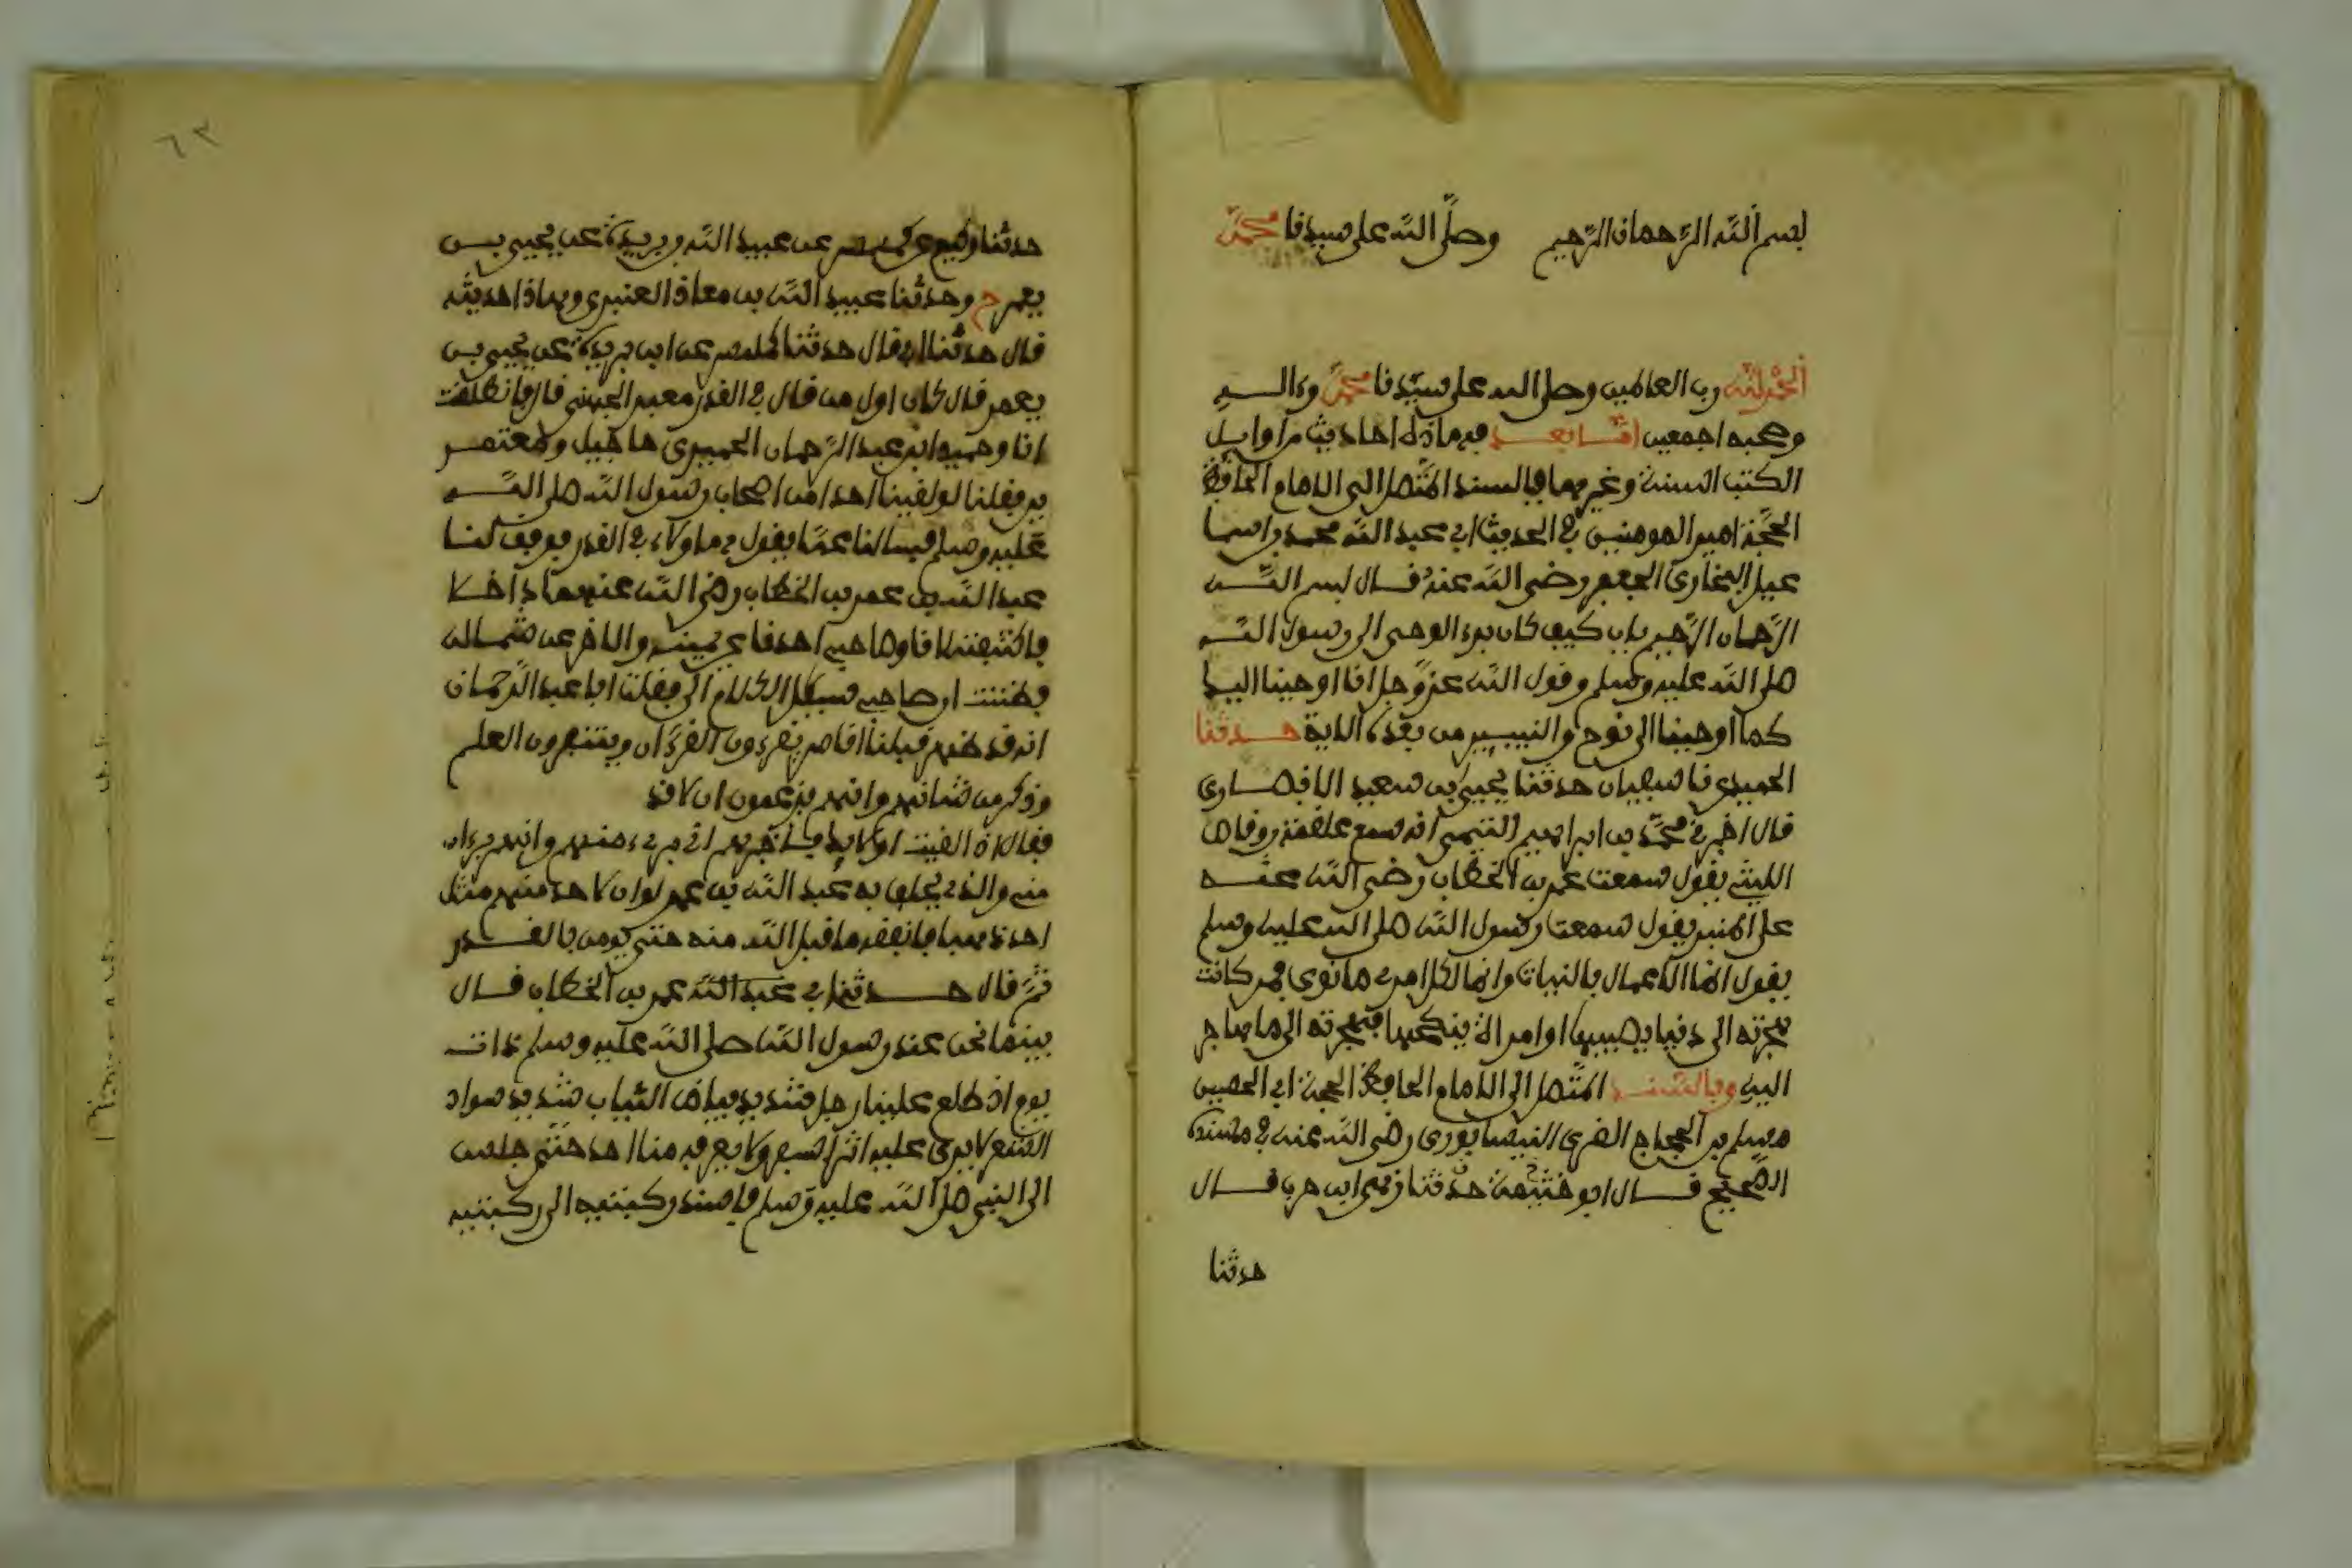 بسم الله الرحمان الرحيم وصلى الله على سيدنا محمد
الحمد لله رب العالمين وصلى الله على سيدنا محمد وءاله
وصحبه اجمعين اما بعد فهاذه احاديث من اوايل
الكتب الستة وغيرها فبالسند المتصل الى الامام الحافظ
الحجة امير المومنين في الحديث ابي عبد الله محمد بن اسما
عيل البخاري الجعفي رضي الله عنه قال بسم الله
الرحمان الرحيم باب كيف كان بدء الوحي الى رسول الله
صلى الله عليه وسلم وقول الله عز وجل انا اوحينا اليك
كما اوحينا الى نوح والنبيين من بعده الاية حدثنا
الحميدي نا سفيان حدثنا يحيى بن سعيد الانصاري
قال اخبرني محمد بن ابراهيم التيمي انه سمع علقمة بن وقاص
الليثي يقول سمعت عمر بن الخطاب رضي الله عنه
على المنبر يقول سمعت رسول الله صلى الله عليه وسلم
يقول انما الاعمال بالنيات وانما لكل امرء ما نوى فمن كانت
هجرته الى دنيا يصيبها او امراة ينكحها فهجرته الى ما هاجر
اليه وبالسند المتصل الى الامام الحافظ الحجة ابي الحسين
مسلم بن الحجاج القشري النيسابوري رضي الله عنه في مسنده
الصحيح قال ابو خيثمة حدثنا زهير ابن حرب قال
حدثنا
٦٢
حدثنا وكيع عن كهمس عن عبيد الله بن بريدة عن يحيى بن
يعمر ح وحدثنا عبيد الله بن معاذ العنبري وهاذا حديثه
قال حدثنا ابي قال حدثنا كهمس عن ابن بريدة عن يحيى بن
يعمر قال كان اول من قال في القدر معبد الجهني قال فانطلقت
انا وحميد ابن عبد الرحمان الحميري حاجين او معتمر
ين فقلنا لو لقينا احدا من اصحاب رسول الله صلى الله
عليه وسلم فسالنا عما يقول هاولاء في القدر فوفق لنا
عبد الله بن عمر بن الخطاب رضي الله عنهما داخلا
فاكتنفته انا وصاحبي احدنا عن يمينه والاخر عن شماله
فظننت ان صاحبي سيكل الكلام الي فقلت ابا عبد الرحمان
انه قد ظهر قبلنا اناس يقرءون القرءان ويتقفرون العلم
وذكر من شانهم وانهم يزعمون ان لا قد
فقال اذا لقيت اولايك فاخبرهم اني بريء منهم وانهم برءاء
مني والذي يحلف به عبد الله بن عمر لو ان لاحدهم مثل
احد ذهبا فانفقه ما قبل الله منه حتى يومن بالقدر
ثم قال حدثني ابي عبد الله عمر بن الخطاب قال
بينما نحن عند رسول الله صلى الله عليه وسلم ذات
يوم اذ طلع علينا رجل شديد بياض الثياب شديد سواد
الشعر لا يرى عليه اثر السفر ولا يعرفه منا احد حتى جلس
الى النبي صلى الله عليه وسلم فاسند ركبتيه الى ركبتيه